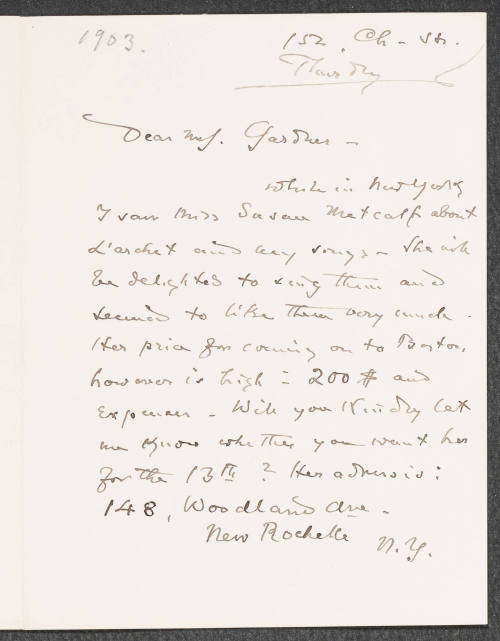 1903.
152, Ch - St.
Thursday
Dear Mrs. Gardner -
While in New York
I saw Miss Susan Metcalf about
L'archet and my songs - She will
be delighted to sing them and
seemed to like them very much.
Her price for coming on to Boston,
however is high = 200 $ and
expenses - Will you kindly let
me know whether you want her
for the 13th? Her adress is:
148, Woodland Ave -
New Rochelle
N.Y.